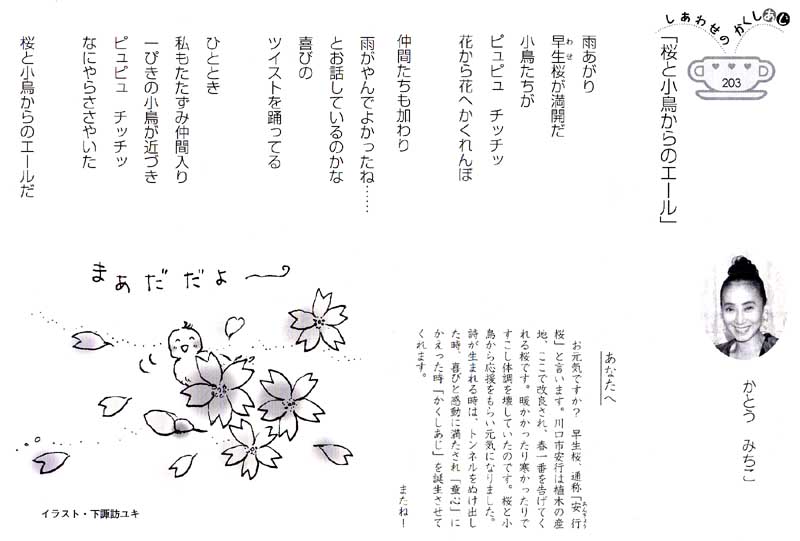 しあわせのかくしあじ
203
「桜と小鳥からのエール」
かとう みちこ
雨あがり
早生桜が満開だ
わせ
小鳥たちが
ピュピュ チッチッ
花から花へかくれんぼ
仲間たちも加わり
雨がやんでよかったね……
とお話しているのかな
喜びの
ツイストを踊ってる
ひととき
私もたたずみ仲間入り
一ぴきの小鳥が近づき
ピュピュ チッチッ
なにやらささやいた
桜と小鳥からのエールだ
あなたへ
お元気ですか? 早生桜、通称「安行
あんぎょう
桜」と言います。川口市安行は植木の産
地、ここで改良され、春一番を告げてく
れる桜です。暖かかったり寒かったりで
すこし体調を壊していたのです。桜と小
鳥から応援をもらい元気になりました。
詩が生まれる時は、トンネルをぬけ出し
た時、喜びと感動に満たされ「童心」に
かえった時「かくしあじ」を誕生させて
くれます。
またね!
まあだだよ
イラスト・下諏訪ユキ